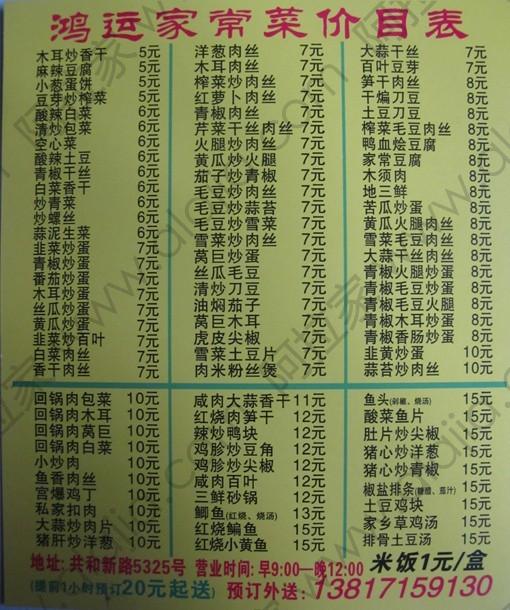 鸿运家常菜价目表
木耳炒香干 5元
麻辣豆腐 5元
小葱蛋饼 5元
豆芽炒榨菜 5元
酸辣白菜 6元
清炒包菜 6元
空心菜 6元
酸辣土豆 6元
青椒干丝 6元
白菜香干 6元
炒青菜 6元
炒螺丝 6元
蒜泥生菜 6元
韭菜炒蛋 7元
青椒炒蛋 7元
番茄炒蛋 7元
木耳炒蛋 7元
丝瓜炒蛋 7元
黄瓜炒蛋 7元
韭菜炒百叶 7元
白菜肉丝 7元
香干肉丝 7元
洋葱肉丝 7元
木耳肉丝 7元
榨菜炒肉丝 7元
红萝卜肉丝 7元
青椒肉丝 7元
芹菜干丝肉丝 7元
火腿炒肉丝 7元
黄瓜炒火腿 7元
茄子炒青椒 7元
毛豆炒肉丝 7元
毛豆炒蒜苔 7元
毛豆炒雪菜 7元
雪菜炒肉丝 7元
莴巨炒蛋 7元
丝瓜毛豆 7元
清炒刀豆 7元
油焖茄子 7元
莴巨木耳 7元
虎皮尖椒 7元
雪菜土豆片 7元
肉米粉丝煲 7元
大蒜干丝 7元
百叶豆芽 7元
笋干肉丝 8元
干煸刀豆 8元
土豆刀豆 8元
榨菜毛豆肉丝 8元
鸭血烩豆腐 8元
家常豆腐 8元
木须肉 8元
地三鲜 8元
苦瓜炒蛋 8元
黄瓜火腿肉丝 8元
雪菜毛豆肉丝 8元
大蒜干丝肉丝 8元
青椒火腿炒蛋 8元
青椒毛豆炒蛋 8元
青椒毛豆火腿 8元
青椒木耳炒蛋 8元
青椒香肠炒蛋 8元
韭黄炒蛋 10元
蒜苔炒肉丝 10元
回锅肉包菜 10元
回锅肉木耳 10元
回锅肉莴巨 10元
回锅肉白菜 10元
小炒肉 10元
鱼香肉丝 10元
宫爆鸡丁 10元
私家扣肉 10元
大蒜炒肉片 10元
猪肝炒洋葱 10元
咸肉大蒜香干 11元
红烧肉笋干 12元
辣炒鸭块 12元
鸡胗炒豆角 12元
鸡胗炒尖椒 12元
咸肉百叶 12元
三鲜砂锅 12元
鲫鱼(红烧、烧汤) 13元
红烧鳊鱼 15元
红烧小黄鱼 15元
鱼头(剁椒、烧汤) 15元
酸菜鱼片 15元
肚片炒尖椒 15元
猪心炒洋葱 15元
猪心炒青椒 15元
椒盐排条(糖醋、茄汁) 15元
土豆鸡块 15元
家乡草鸡汤 15元
排骨土豆汤 15元
地址: 共和新路5325号 营业时间: 早9:00—晚12:00 米饭1元/盒
(提前1小时预订20元起送) 预订外送: 13817159130